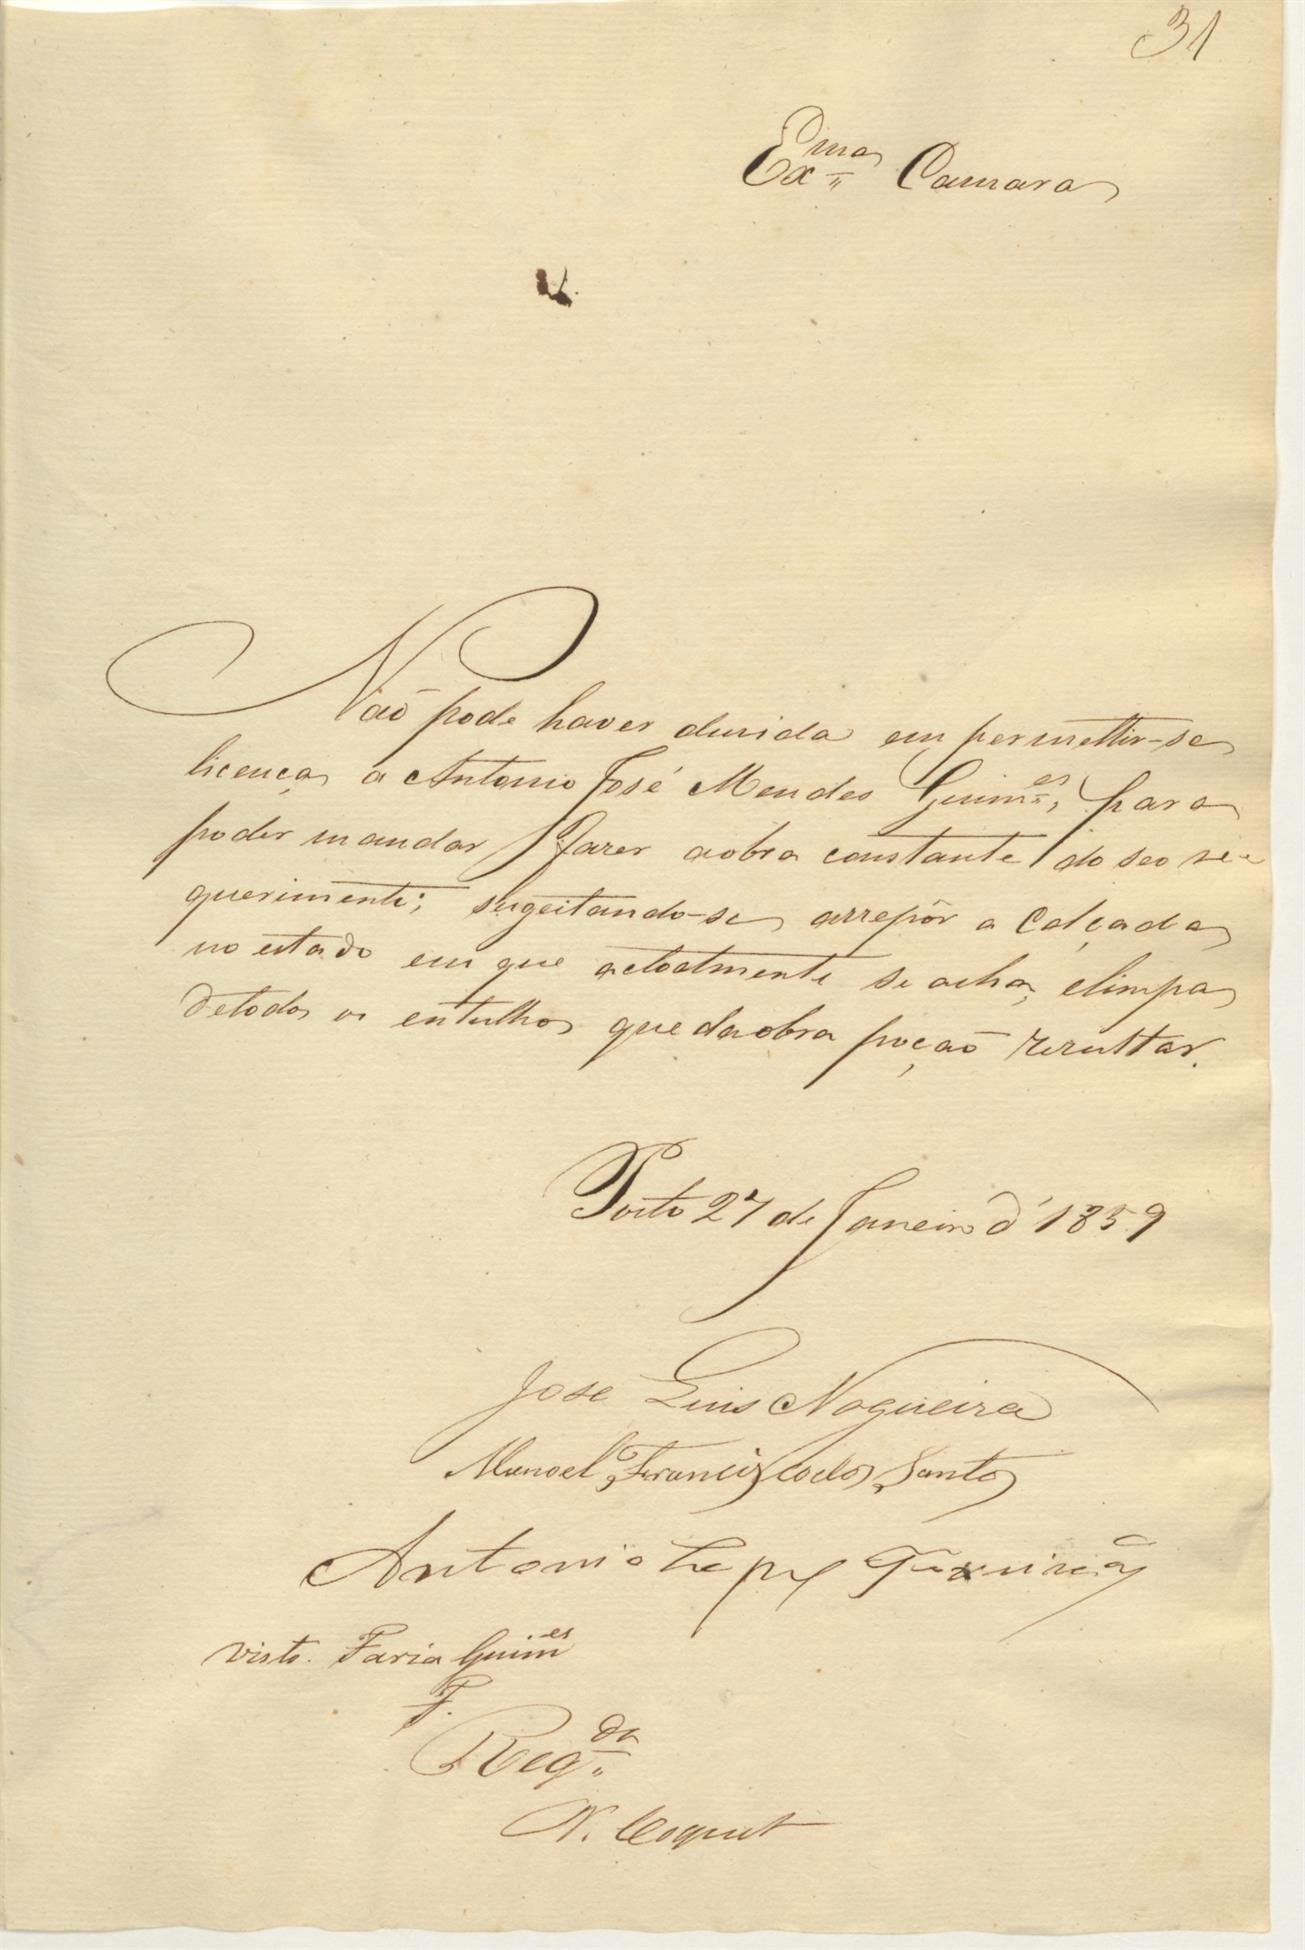 31
Exma Camara
Naõ pode haver duvida em permettir-se
licença a Antonio José Mendes Guimes, para
poder mandar fazer aobra constante do seo re=
querimento; sugeitando-se arrepôr a Calçada
no estado em que actoalmente se acha, elimpa
detodos os entulhos que daobra poçaõ rezultar.
Porto 27 de Janeiro d'1859
Jose Luis Nogueira
Manoel Francisco dos Santos
Antonio Lopes Teixeira
visto. Faria Guimes
F.
Regda
N. Coquet